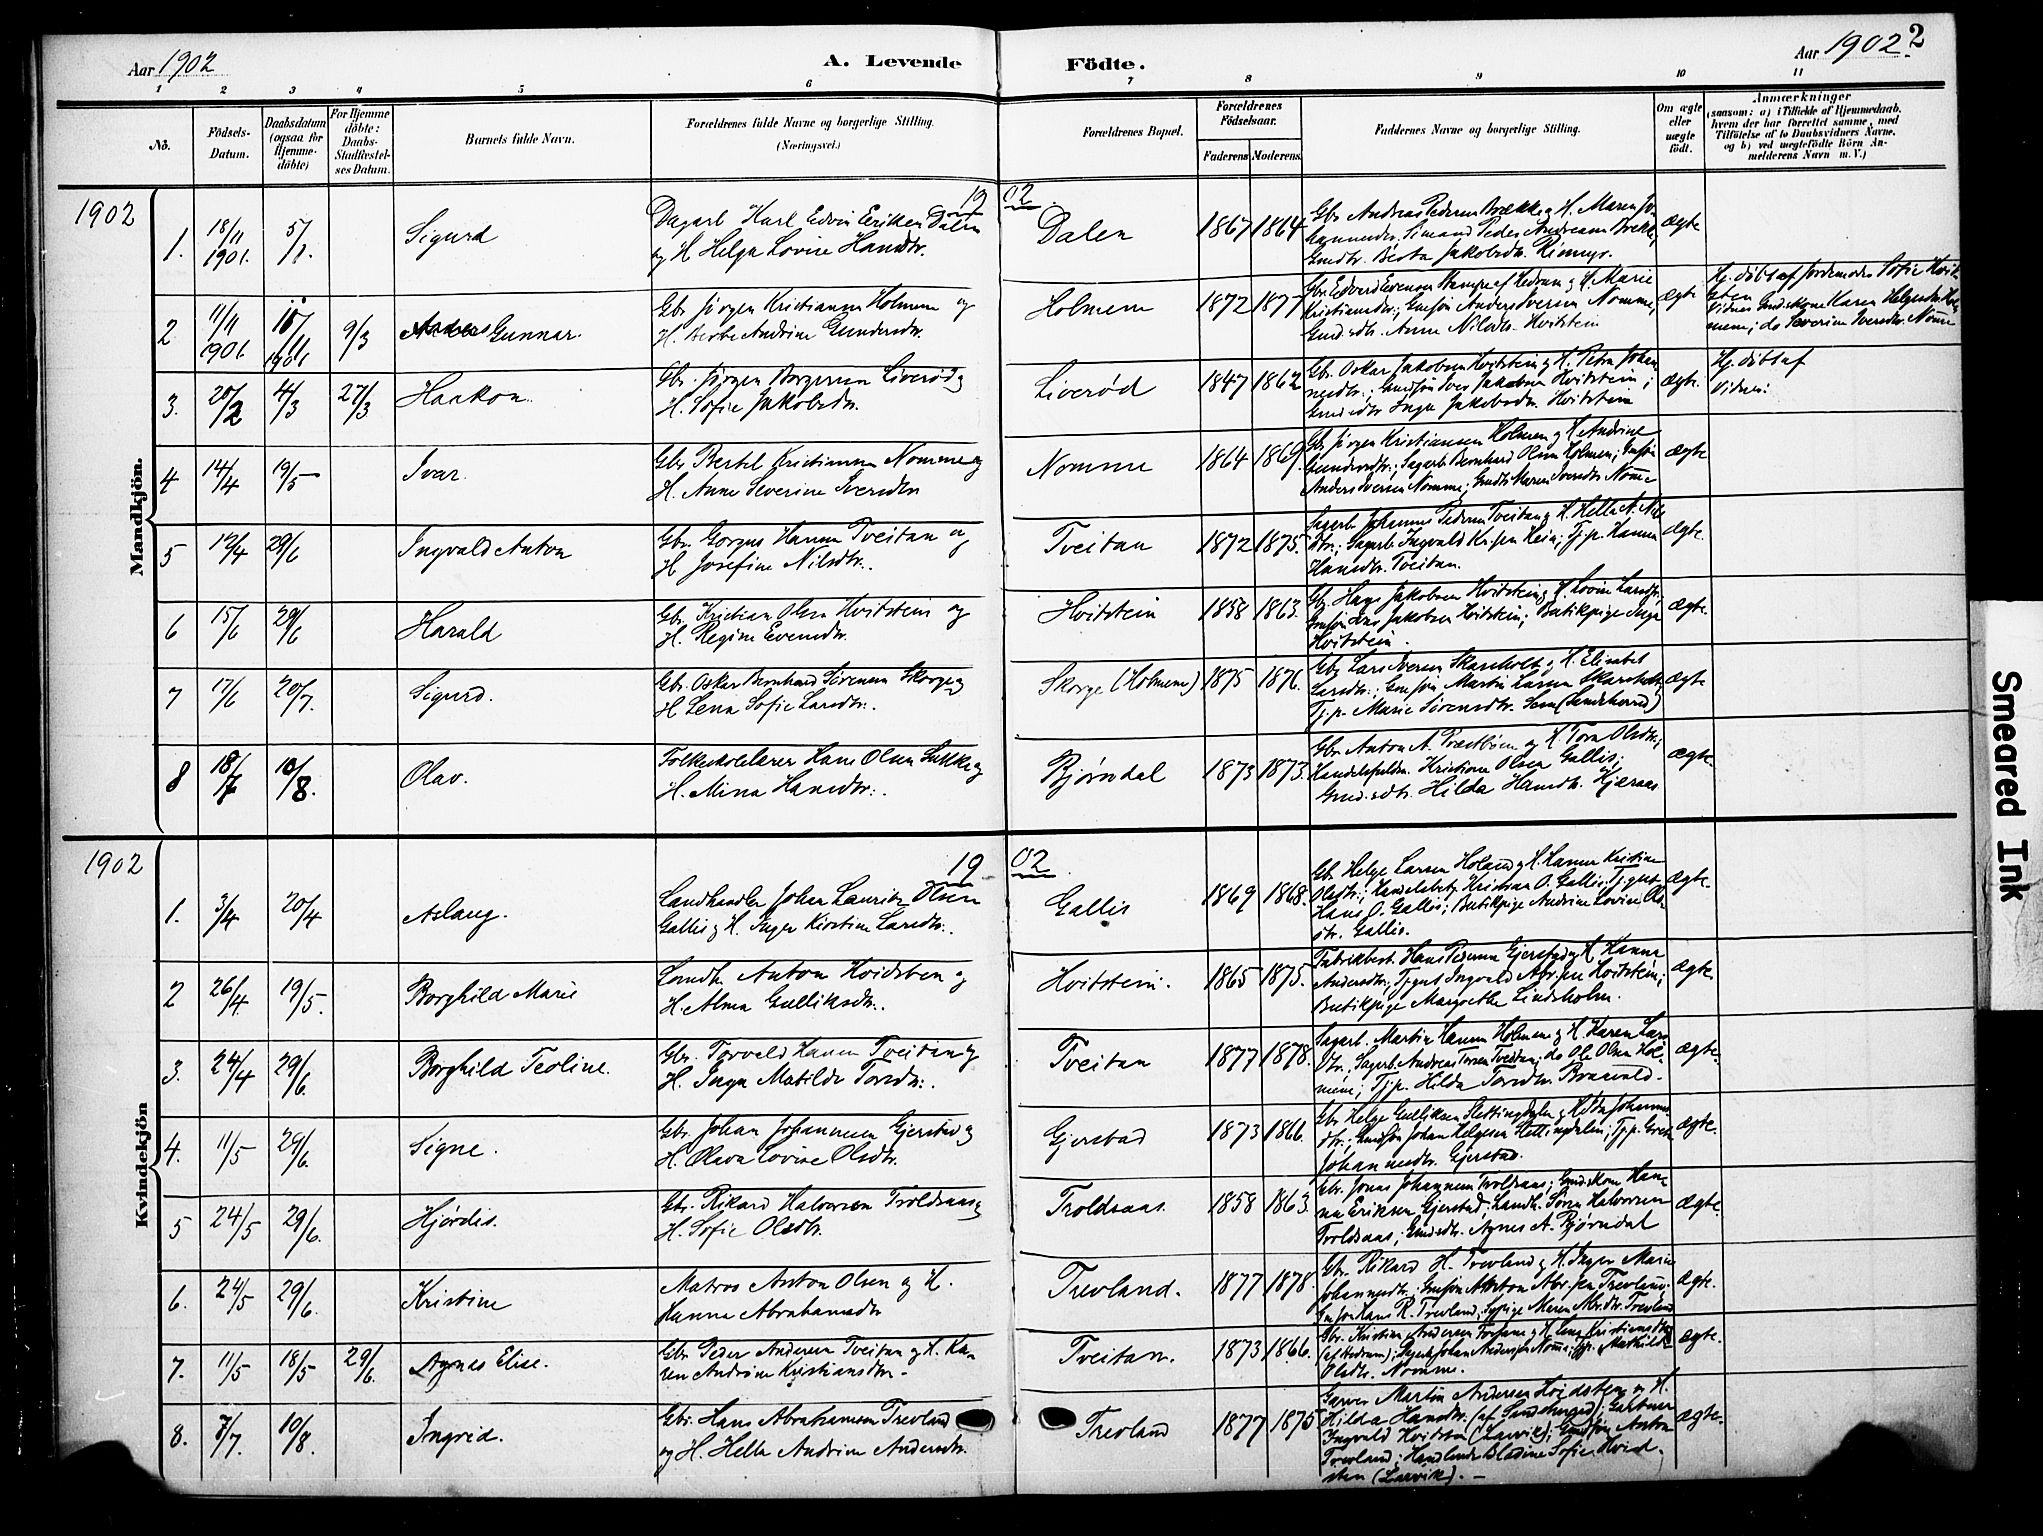 Aar 1902
A. Levende
Födte.
Aar 1902.
2
1 2 3 4 5 6 7 8 9 10 11
No.
Födsels-
Datum.
Daabsdatum
(ogsaa for
Hjemme-
döbte)
For Hjemme
döbte:
Daabs-
Stadfæstel-
ses Datum.
Barnets fulde Navn.
Forældrenes fulde Navne og borgerlige Stilling.
(Næringsvei.)
Forældrenes Bopæl.
Forældrenes
Födselsaar.
Faderens Moderens.
Faddernes Navne og borgerlige Stilling.
Om ægte
eller
uægte
födt.
Anmærkninger
(saasom: a) i Tilfælde af Hjemmedaab.
hvem der har forrettet samme, med
Tilföielse af to Daabsvidners Navne.
og b) ved uægtefödte Börn An-
melderens Navn m. V.)
Mandkjön.
1902
19 02.
1. 18/11 1901. 5/1. Sigurd
Dagarb. Karl Edvin Eriksen Dalen
og H. Helga Lovise Hansdtr.
Dalen 1867 1864
Gbr. Andreas Pedersen Brække og H. Maren Jo-
ægte
2 11/11 1901. 1901 9/3 Gunnar.
Gbr. Jørgen Kristiansen Holmene og
H. Andrine Gundersdtr.
Holmene 1872 1877
Gmd.sdtr. Anne Nilsdtr. Hvitstein
ægte
Hj. døbt af Jordemoder Sofie Hvit-
sten
3. 20/2 4/3 27/3 Haakon.
Gbr. Jørgen Borgersen Liverød og
H. Sofie Jakobsdtr.
Liverød 1847 1862
Gbr. Oskar Jakobsen Hvitstein og H. Petra Johan-
nesdtr.; Gmdsøn Iver Jakobsen Hvitstein;
Gmd.sdtr. Inga Jakobsdtr. Hvitstein
ægte.
Hj. døbt af
Vidner:
4 14/4 19/5 Ivar.
Gbr. Bertel Kristiansen Nomme og
H. Anne Severine Iversdtr.
Nomme 1864 1869.
Gbr. Jørgen Kristiansen Holmene og H. Andrine
Gundersdtr.; Dagarb. Bernhard Olsen Holmen;
Anders Iversen Nomme; Maren Iversdtr. Nomme
ægte
5 12/4 29/6 Ingvald Anton
Gbr. Gorgus Hansen Tveitan og
H. Josefine Nilsdtr.
Tveitan 1872 1875.
Dagarb. Johannes Pedersen Tveitan og H. Helle
Hansdtr. Tveitan.
ægte.
6 15/6 29/6 Harald
Gbr. Kristian Olsen Hvitstein og
H. Regine Evensdtr.
Hvitstein 1858 1863.
Gbr. Jakobsen Hvitstein og H. Lovise Larsdtr.,
Jakobsen Hvitstein; Butikpige Inga
Hvitstein.
ægte.
7 17/6 20/7. Sigurd.
Gbr. Oskar Bernhard Sørensen Skorge og
H. Lena Sofie Larsdtr.
Skorge (Holmene) 1875 1876.
Gbr. Lars Iversen Skarsholt og H. Elisabet
Larsdtr.; Gmdsøn Martin Larsen Skarsholt;
Tj.p. Marie Sørensdtr. Sem (Sandeherred)
ægte
8 18/7 10/8. Olav.
Folkeskolelærer Hans Olsen og
H. Mina Hansdtr.
Bjørndal 1873 1873.
Gbr. Anton A. og H. Torn Olsdtr.;
Handelsfuldm. Kristian Olsen Gallis;
Gmd.sdtr. Hilda Hansdtr. Hjæraas
ægte.
Kvindekjön
1902
19 02
1. 3/4 20/4 Aslaug.
Landhandler Johan Lauritz Olsen
Gallis og H. Inger Kirstine Larsdtr.
Gallis 1869 1868.
Gbr. Helge Larsen Holand og H. Karen Kristine
Olsdtr.; Kristian O. Gallis; Tj.gut
Hans O. Gallis; Butikpige Andrine Lovise Ol-
sdtr. Gallis.
ægte.
2 26/4. 19/5. Borghild Marie
Landh. Anton Hvidsten og
H. Alma Gulliksdtr.
Hvitstein. 1865 1875.
Fabrikbest. Hans Pedersen Gjerstad og H. Hanna
Andersdtr.; Tj.gut Ingvald Abr.sen Hvitstein;
Butikpige Margrethe Lindsholm.
ægte
3. 24/4 29/6 Borghild Teoline.
Gbr. Torvald Hansen Tveitan og
H. Inga Matilde Torsdtr.
Tveitan 1877 1878.
Dagarb. Martin Hansen Holmene og H. Karen Lars-
dtr., Dagarb. Andreas Torsen Tveitan; do Ole Olsen Hol-
mene; Tj.p. Hilda Torsdtr. Braavold.
ægte.
4. 11/5 29/6. Signe.
Gbr. Johan Johannesen Gjerstad og
H. Olava Lovise Olsdtr.
Gjerstad 1873 1866.
Gbr. Helge Gulliksen Slettingdalen og H. Ida Johannes-
dtr.; Gmdsøn Johan Helgesen Slettingdalen; Tj.p. Grete
Johannesdtr. Gjerstad.
ægte.
5 24/5 29/6. Hjørdis.
Gbr. Rikard Halvorsen Troldsaas og
H. Sofie Olsdtr.
Troldsaas. 1858 1863.
Gbr. Jonas Johannesen Troldsaas; Gmd.skone Han-
na Eriksen Gjerstad, Landh. Søren Halvorsen
Troldsaas; Gmd.sdtr. Agnes A. Bjørndal
ægte.
6. 24/5 29/6. Kristine
Matros Anton Olsen og H.
Hanna Abrahamsdtr
Trevland. 1877 1878.
Gbr. Rikard H. Trevland og H. Inger Marie
Johannesdtr.; Gmdsøn Anton Abr.sen Trevland;
Gmdsøn Hans R. Trevland; Sypige Maren Abr.dtr. Trevland
ægte.
7. 11/5 18/5 29/6. Agnes Elise.
Gbr. Peder Andersen Tveitan og H. Ka-
ren Andrine Kristiansdtr.
Tveitan. 1873 1866.
Olsdtr. Nomme.
ægte.
8. 7/7. 10/8. Ingrid.
Gbr. Hans Abrahamsen Trevland
og H. Helle Andrine Andersdtr.
Trevland 1877 1875
Garver Martin Andersen Hvidsten og H.
Hilda Hansdtr. (af Sandeherred); Gartner
Ingvald Hvidsten (Larvik); Gmdsøn Anton
Trevland; Handlende Bladine Sofie Hvid-
sten (Larvik). —
ægte.
Smeared Ink